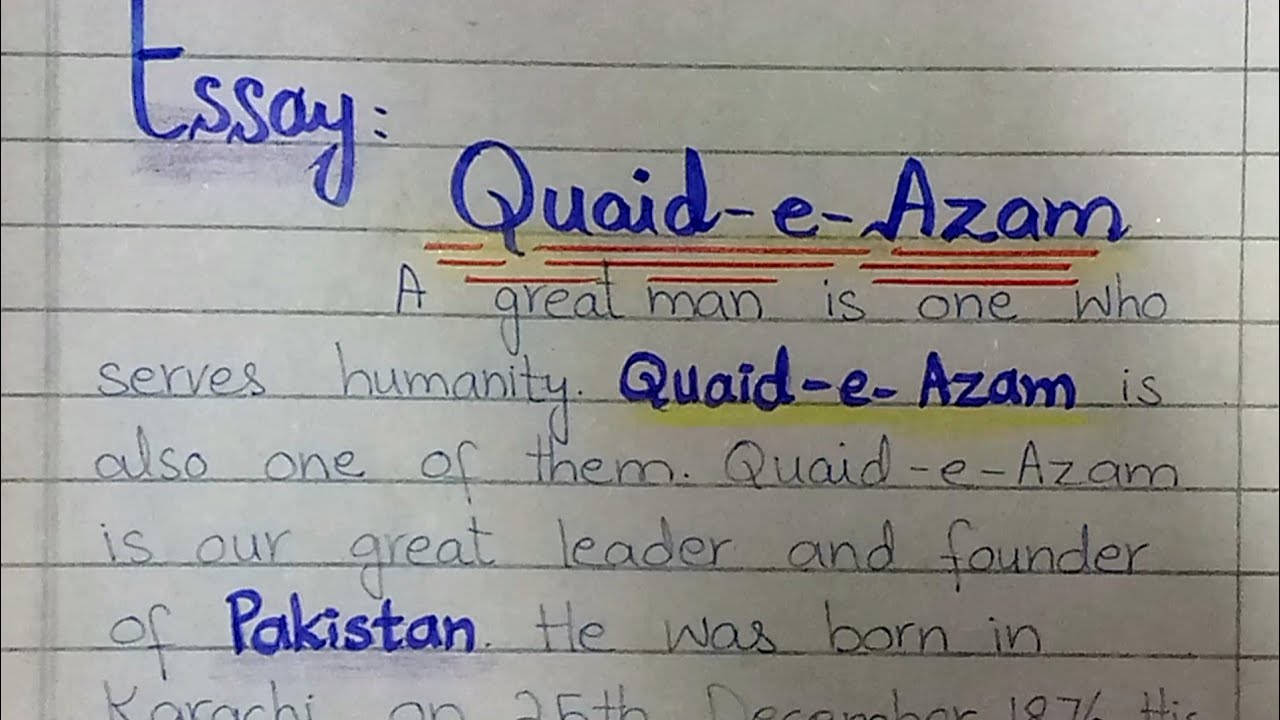 Essay:
Quaid-e-Azam
A great man is one who
serves humanity. Quaid-e-Azam is
also one of them. Quaid-e-Azam
is our great leader and founder
of Pakistan. He was born in
Karachi on 25th December 1876 His